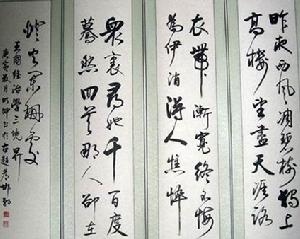 昨夜西風凋碧樹獨上
高樓望盡天涯路
衣帶漸寬終不悔
為伊消得人憔悴
衆裏尋他千百度
驀然回首那人卻在
燈火闌珊處
王國維治學三境界